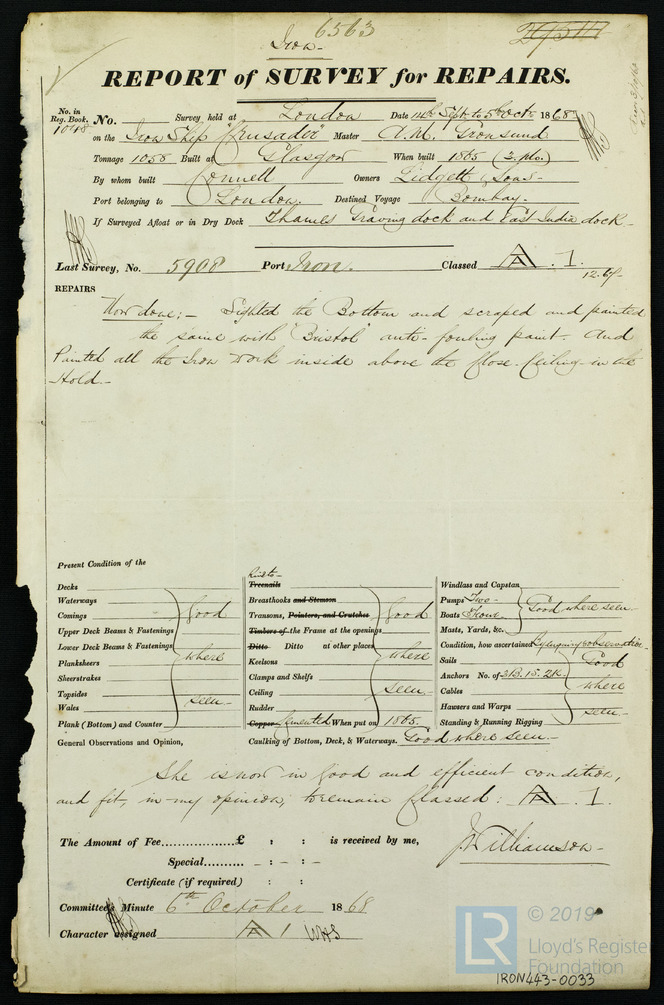 6563
Iron
REPORT of SURVEY for REPAIRS.
No. in Reg. Book. No. Survey held at London Date 14th Sept. to 5th Octr. 1868
1048 on the Iron Ship "Crusader" Master A. M. Gronsund
Tonnage 1058 Built at Glasgow When built 1865 (3. Mo.)
By whom built Connell Owners Lidgett & Sons
Port belonging to London. Destined Voyage Bombay.
If Surveyed Afloat or in Dry Dock Thames Graving dock and East India dock
Last Survey, No. 5908 Port Iron. Classed A . 1.
REPAIRS
Now done; - Sighted the Bottom and scraped and painted
the same with "Bristol" anti-fouling paint. And
Painted all the Iron work inside above the Close Ceiling in the
Hold.
Present Condition of the
Decks
Waterways
Comings
Upper Deck Beams & Fastenings
Lower Deck Beams & Fastenings
Planksheers
Sheerstrakes
Topsides
Wales
Plank (Bottom) and Counter
Good
where
seen
Treenails
Breasthooks and Stemson
Transoms, Pointers, and Crutches
Timbers of the Frame at the openings
Ditto Ditto at other places
Keelsons
Clamps and Shelfs
Ceiling
Rudder
Copper Cemented When put on 1865.
Good
where
seen
Caulking of Bottom, Deck, & Waterways. Good where seen
Windlass and Capstan
Pumps Two
Boats Four
Masts, Yards, &c.
Good where seen
Condition, how ascertained By enquiry & observation
Sails
Anchors No. of 3B. 1S. 2K.
Cables
Hawsers and Warps
Standing & Running Rigging
Good
where
seen
General Observations and Opinion,
She is now in good and efficient condition,
and fit, in my opinion, to remain Classed: A . 1.
The Amount of Fee £ : : is received by me,
J Williamson
Special - : - : -
Certificate (if required) : :
Committee's Minute 6th October 1868
Character assigned A 1
LR
© 2019
Lloyd's Register
Foundation
IRON443-0033